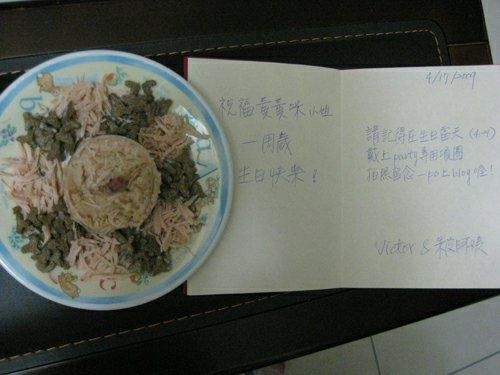 祝福黃黃咪小姐
一周歲
生日快樂！
4/17/2009
請記得在生日當天 (4-21)
戴上party專用項圈
拍照留念—po上blog喔！
Victor &